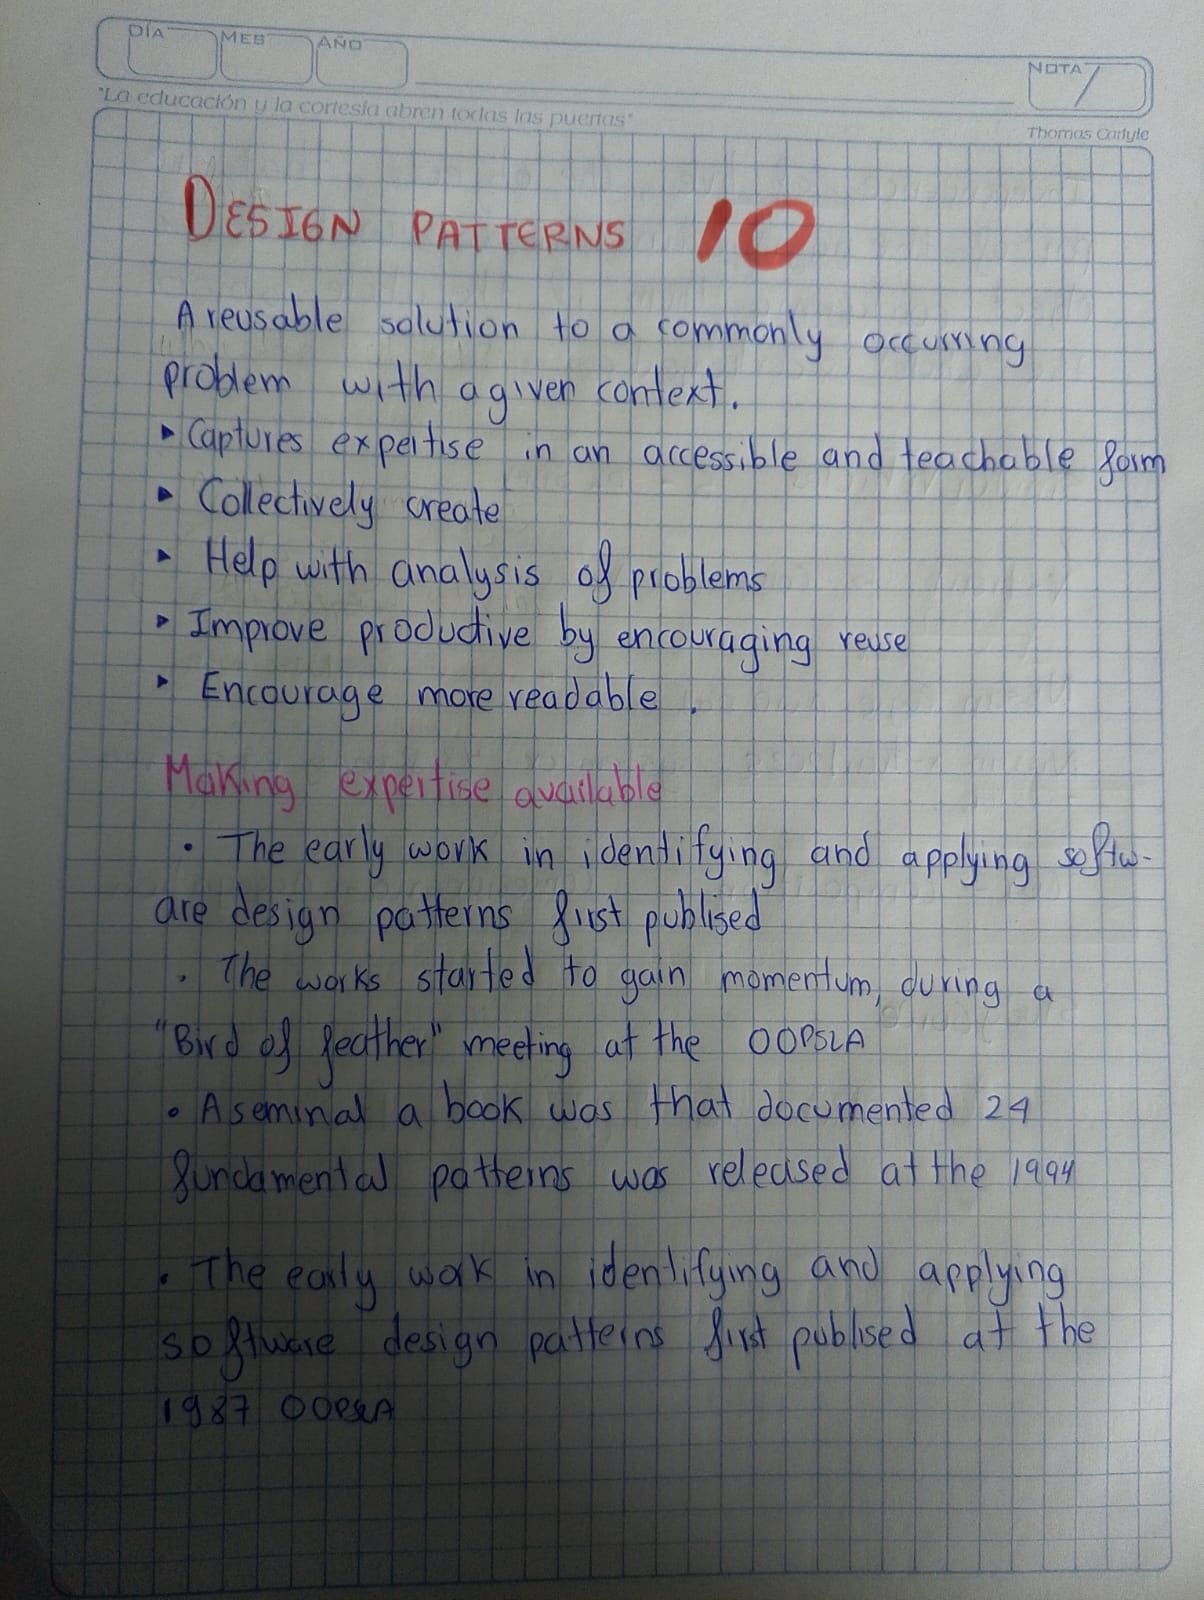 DÍA MES AÑO NOTA
"La educación y la cortesía abren todas las puertas"
Thomas Carlyle
DESIGN PATTERNS 10
A reusable solution to a commonly occurring
problem with a given context.
▸ Captures expertise in an accessible and teachable form
▸ Collectively create
▸ Help with analysis of problems
▸ Improve productive by encouraging reuse
▸ Encourage more readable.
Making expertise available
• The early work in identifying and applying softw-
are design patterns first publised
• The works started to gain momentum, during a
"Bird of feather" meeting at the OOPSLA
• A seminal a book was that documented 24
fundamental patterns was released at the 1994
• The early work in identifying and applying
software design patterns first publised at the
1987 OOPSLA